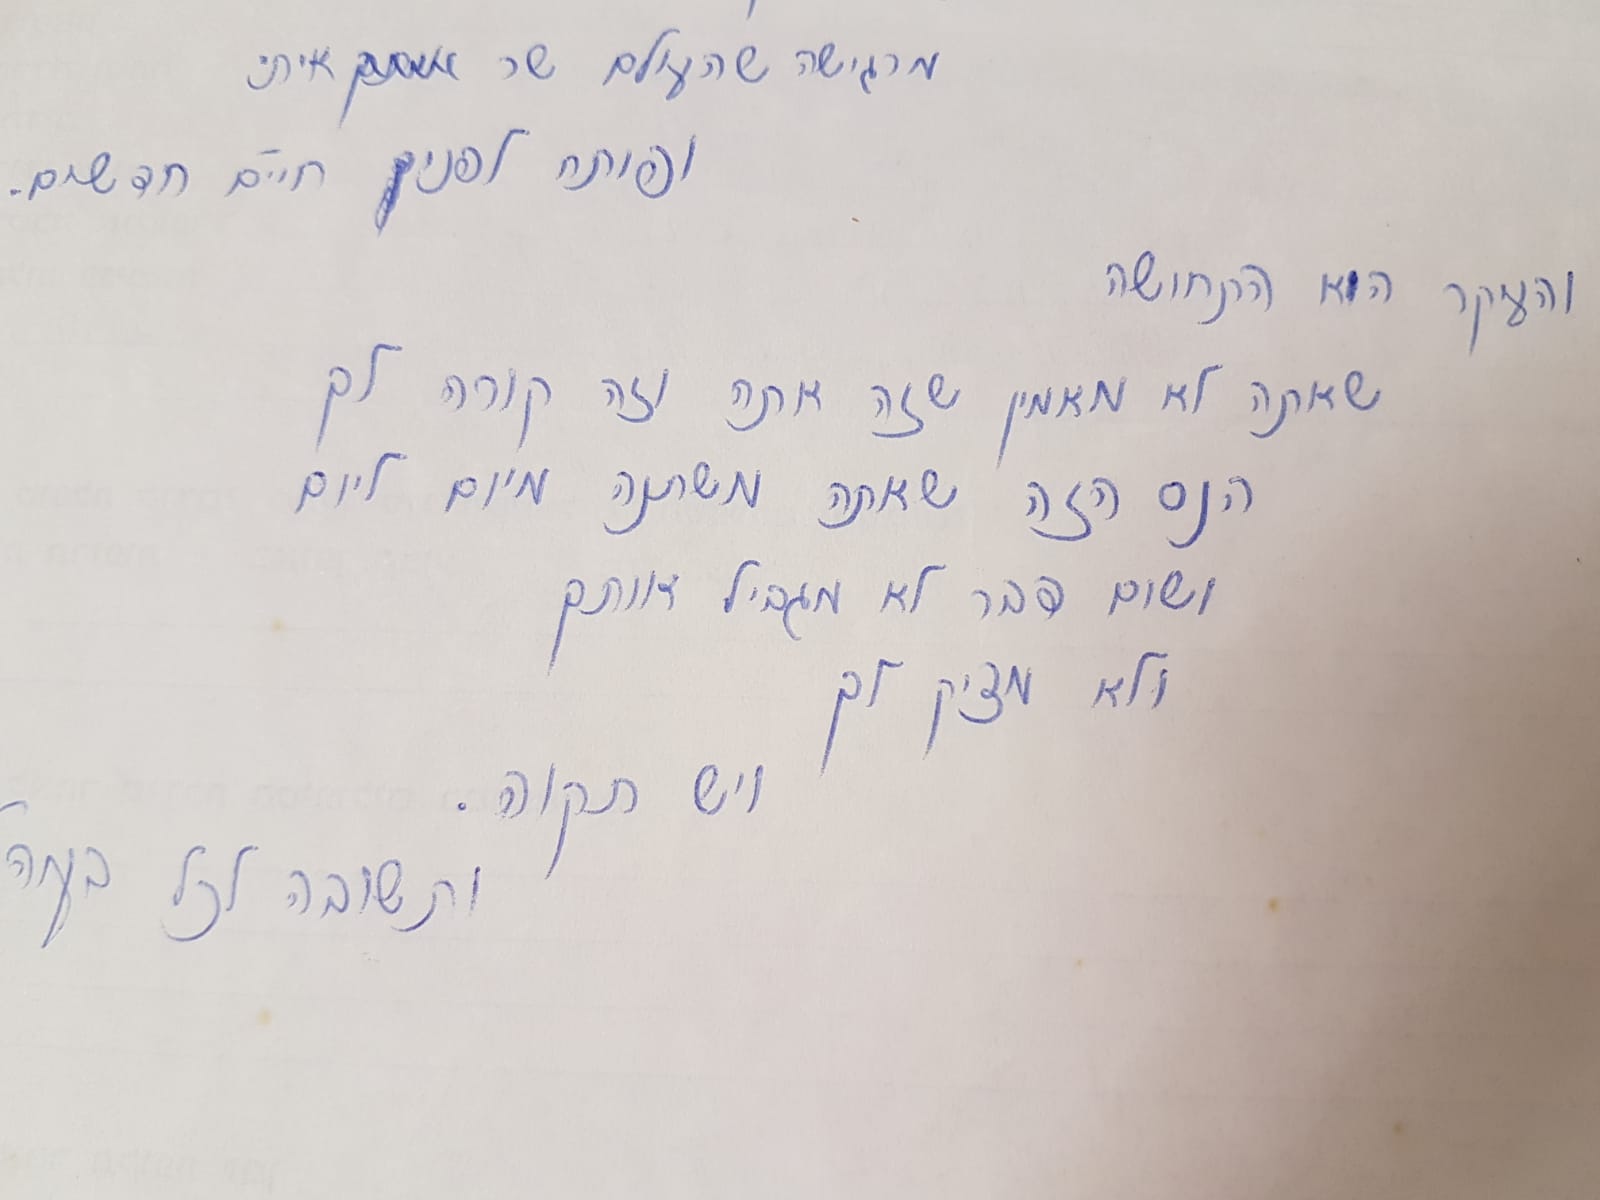 מרגישה שהעולם שר איתי
ופותח לפני חיים חדשים.
והעיקר הוא התחושה
שאתה לא מאמין שזה אתה וזה קורה לך
הנס הזה שאתה משתנה מיום ליום
ושום דבר לא מגביל אותך
ולא מציק לך
ויש תקוה.
ותשובה לכל בעיה